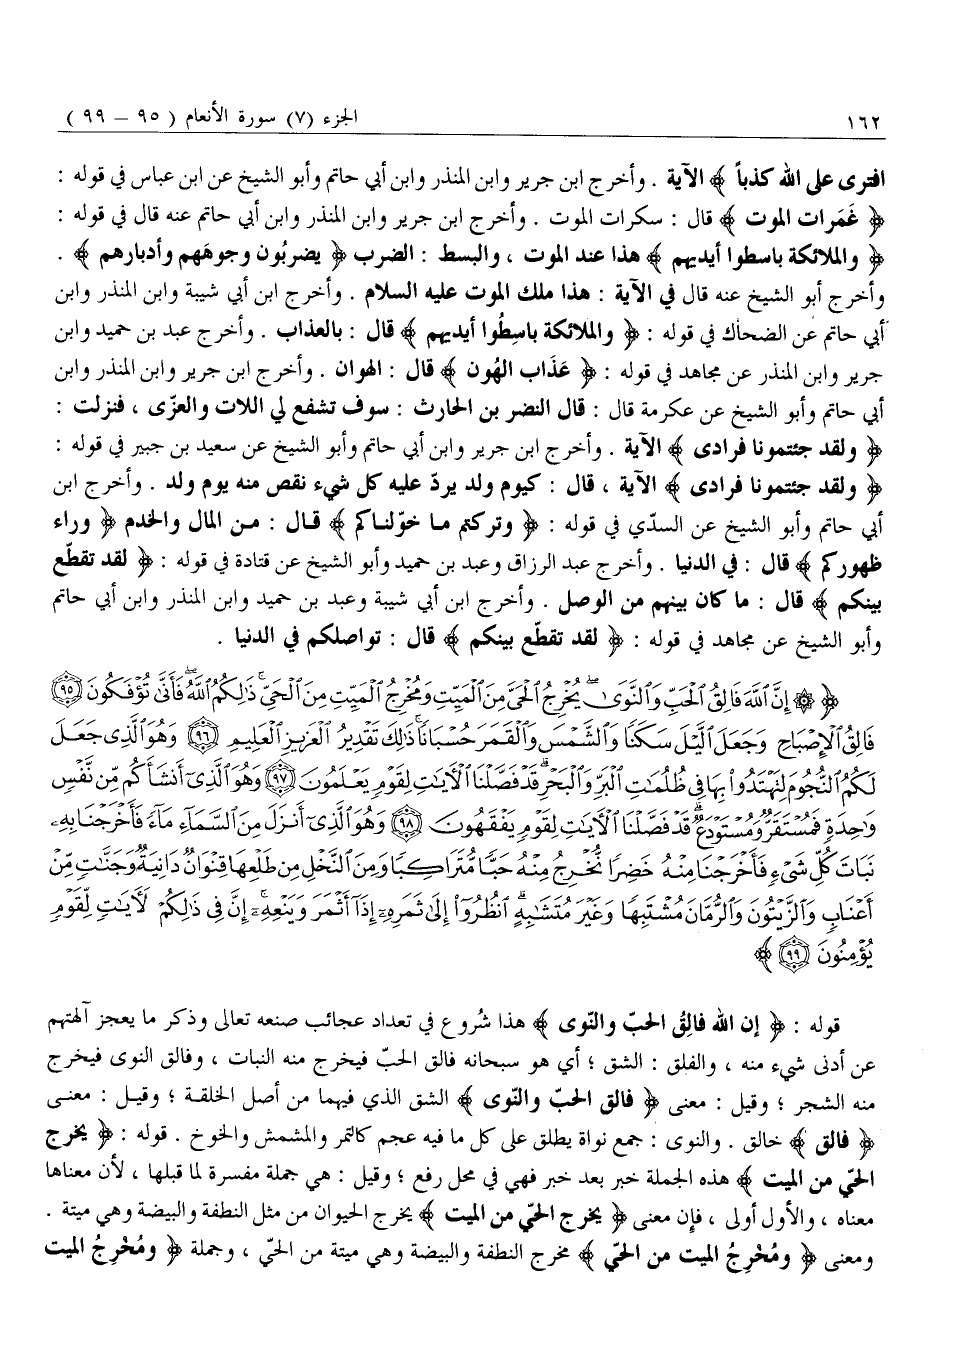 ١٦٢
الجزء (٧) سورة الأنعام ( ٩٥ – ٩٩ )
افترى على الله كذباً ﴾ الآية . وأخرج ابن جرير وابن المنذر وابن أبي حاتم وأبو الشيخ عن ابن عباس في قوله :
﴿ غَمَرات الموت ﴾ قال : سكرات الموت . وأخرج ابن جرير وابن المنذر وابن أبي حاتم عنه قال في قوله :
﴿ والملائكة باسطوا أيديهم ﴾ هذا عند الموت ، والبسط : الضرب ﴿ يضربُون وجوهَهم وأدبارهم ﴾ .
وأخرج أبو الشيخ عنه قال في الآية : هذا ملك الموت عليه السلام . وأخرج ابن أبي شيبة وابن المنذر وابن
أبي حاتم عن الضحاك في قوله : ﴿ والملائكة باسِطُوا أيديهم ﴾ قال : بالعذاب . وأخرج عبد بن حميد وابن
جرير وابن المنذر عن مجاهد في قوله : ﴿ عَذَاب الهُون ﴾ قال : الهوان . وأخرج ابن جرير وابن المنذر وابن
أبي حاتم وأبو الشيخ عن عكرمة قال : قال النضر بن الحارث : سوف تشفع لي اللات والعزّى ، فنزلت :
﴿ ولقد جئتمونا فرادى ﴾ الآية . وأخرج ابن جرير وابن أبي حاتم وأبو الشيخ عن سعيد بن جبير في قوله :
﴿ ولقد جئتمونا فرادى ﴾ الآية ، قال : كيوم ولد يردّ عليه كل شيء نقص منه يوم ولد . وأخرج ابن
أبي حاتم وأبو الشيخ عن السدّي في قوله : ﴿ وتركتم ما خوّلناكم ﴾ قال : من المال والخدم ﴿ وراء
ظهوركم ﴾ قال : في الدنيا . وأخرج عبد الرزاق وعبد بن حميد وأبو الشيخ عن قتادة في قوله : ﴿ لقد تقطّع
بينكم ﴾ قال : ما كان بينهم من الوصل . وأخرج ابن أبي شيبة وعبد بن حميد وابن المنذر وابن أبي حاتم
وأبو الشيخ عن مجاهد في قوله : ﴿ لقد تقطّع بينكم ﴾ قال : تواصلكم في الدنيا .
﴿ ۞ إِنَّ ٱللَّهَ فَالِقُ ٱلْحَبِّ وَٱلنَّوَىٰ ۖ يُخْرِجُ ٱلْحَيَّ مِنَ ٱلْمَيِّتِ وَمُخْرِجُ ٱلْمَيِّتِ مِنَ ٱلْحَيِّ ۚ ذَٰلِكُمُ ٱللَّهُ ۖ فَأَنَّىٰ تُؤْفَكُونَ ٩٥
فَالِقُ ٱلْإِصْبَاحِ وَجَعَلَ ٱلَّيْلَ سَكَنًا وَٱلشَّمْسَ وَٱلْقَمَرَ حُسْبَانًا ۚ ذَٰلِكَ تَقْدِيرُ ٱلْعَزِيزِ ٱلْعَلِيمِ ٩٦ وَهُوَ ٱلَّذِى جَعَلَ
لَكُمُ ٱلنُّجُومَ لِتَهْتَدُوا۟ بِهَا فِى ظُلُمَٰتِ ٱلْبَرِّ وَٱلْبَحْرِ ۗ قَدْ فَصَّلْنَا ٱلْآيَٰتِ لِقَوْمٍ يَعْلَمُونَ ٩٧ وَهُوَ ٱلَّذِىٓ أَنشَأَكُم مِّن نَّفْسٍ
وَٰحِدَةٍ فَمُسْتَقَرٌّ وَمُسْتَوْدَعٌ ۗ قَدْ فَصَّلْنَا ٱلْآيَٰتِ لِقَوْمٍ يَفْقَهُونَ ٩٨ وَهُوَ ٱلَّذِىٓ أَنزَلَ مِنَ ٱلسَّمَآءِ مَآءً فَأَخْرَجْنَا بِهِۦ
نَبَاتَ كُلِّ شَىْءٍ فَأَخْرَجْنَا مِنْهُ خَضِرًا نُّخْرِجُ مِنْهُ حَبًّا مُّتَرَاكِبًا وَمِنَ ٱلنَّخْلِ مِن طَلْعِهَا قِنْوَانٌ دَانِيَةٌ وَجَنَّٰتٍ مِّنْ
أَعْنَابٍ وَٱلزَّيْتُونَ وَٱلرُّمَّانَ مُشْتَبِهًا وَغَيْرَ مُتَشَٰبِهٍ ۗ ٱنظُرُوٓا۟ إِلَىٰ ثَمَرِهِۦٓ إِذَآ أَثْمَرَ وَيَنْعِهِۦٓ ۚ إِنَّ فِى ذَٰلِكُمْ لَآيَٰتٍ لِّقَوْمٍ
يُؤْمِنُونَ ٩٩ ﴾
قوله : ﴿ إن الله فالِقُ الحَبّ والنّوى ﴾ هذا شُروع في تعداد عجائب صنعه تعالى وذكر ما يعجز آلهتهم
عن أدنى شيء منه ، والفلق : الشق ؛ أي هو سبحانه فالق الحبّ فيخرج منه النبات ، وفالق النوى فيخرج
منه الشجر ؛ وقيل : معنى ﴿ فالق الحبّ والنّوى ﴾ الشق الذي فيهما من أصل الخلقة ؛ وقيل : معنى
﴿ فالق ﴾ خالق . والنوى : جمع نواة يطلق على كل ما فيه عجم كالتمر والمشمش والخوخ . قوله : ﴿ يخرج
الحيّ من الميت ﴾ هذه الجملة خبر بعد خبر فهي في محل رفع ؛ وقيل : هي جملة مفسرة لما قبلها ، لأن معناها
معناه ، والأول أولى ، فإن معنى ﴿ يخرج الحيّ من الميت ﴾ يخرج الحيوان من مثل النطفة والبيضة وهي ميتة .
ومعنى ﴿ ومُخْرِجُ الميت من الحيّ ﴾ مخرج النطفة والبيضة وهي ميتة من الحيّ ، وجملة ﴿ ومُخْرِجُ الميت